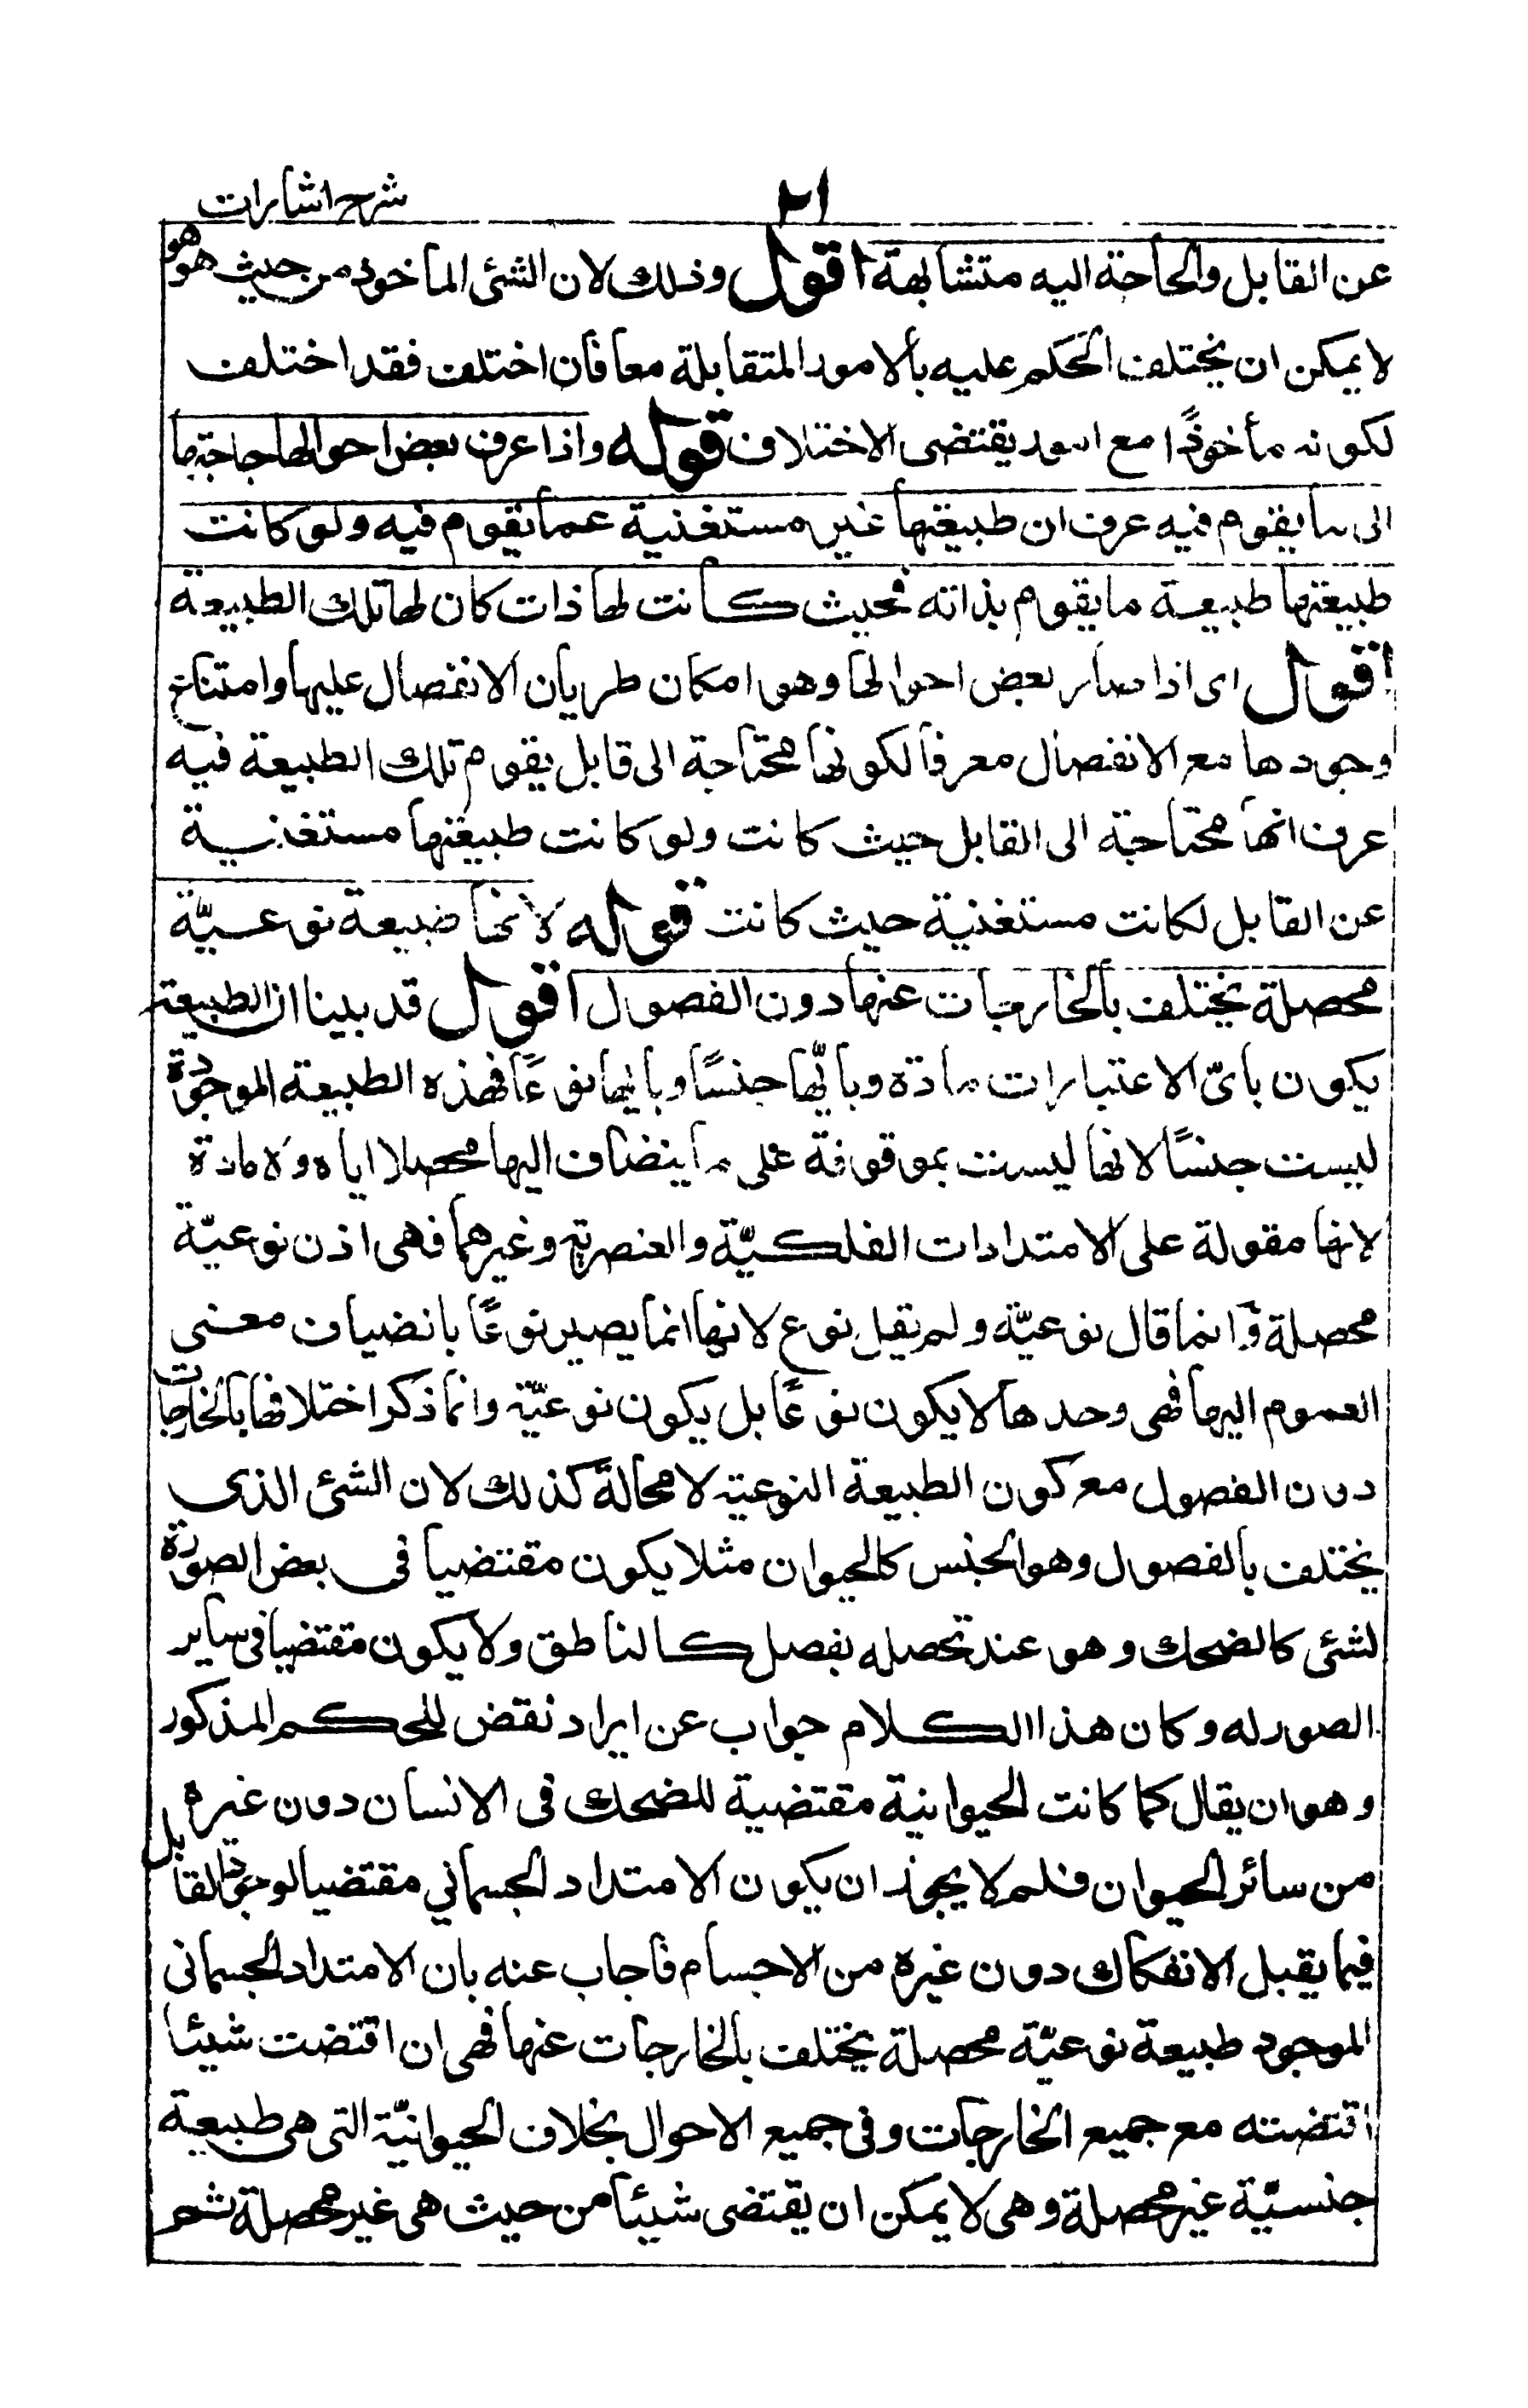 شرح اشارات
٢١
عن القابل والحاجة اليه متشابهة اقول وذلك لان الشئ المأخوذ من حيث هو هو
لا يمكن ان يختلف الحكم عليه بالامور المتقابلة معا فان اختلف فقد اختلف
لكونه مأخوذًا مع امور يقتضى الاختلاف قوله واذا عرف بعض احوالها حاجتها
الى ما يقوم فيه عرف ان طبيعتها غير مستغنية عما يقوم فيه ولو كانت
طبيعتها طبيعة ما يقوم بذاته فحيث كانت لها ذات كان لها تلك الطبيعة
اقول اى اذا صار بعض احوالها وهو امكان طريان الانفصال عليها وامتناع
وجودها مع الانفصال معرفا لكونها محتاجة الى قابل يقوم تلك الطبيعة فيه
عرف انها محتاجة الى القابل حيث كانت ولو كانت طبيعتها مستغنية
عن القابل لكانت مستغنية حيث كانت قوله لانها طبيعة نوعيّة
محصلة يختلف بالخارجات عنها دون الفصول اقول قد بينا ان الطبيعة
يكون باىّ الاعتبارات مادة وبايّها جنسًا وبايها نوعًا فهذه الطبيعة الموجودة
ليست جنسًا لانها ليست بموقوفة على ما ينضاف اليها محصلا اياه ولا مادة
لانها مقولة على الامتدادات الفلكيّة والعنصرية وغيرهما فهى اذن نوعيّة
محصلة وانما قال نوعيّة ولم يقل نوع لانها انما يصير نوعًا بانضياف معنى
العموم اليها فهى وحدها لا يكون نوعًا بل يكون نوعيّة وانما ذكر اختلافها بالخارجات
دون الفصول مع كون الطبيعة النوعية لا محالة كذلك لان الشئ الذى
يختلف بالفصول وهو الجنس كالحيوان مثلا يكون مقتضيا فى بعض الصورة
لشئى كالضحك وهو عند تحصله بفصل كالناطق ولا يكون مقتضيا فى ساير
الصور له وكان هذا الكلام جواب عن ايراد نقض للحكم المذكور
وهو ان يقال كما كانت الحيوانية مقتضية للضحك فى الانسان دون غيره
من سائر الحيوان فلم لا يجوز ان يكون الامتداد الجسمانى مقتضيا لوجود القابل
فيما يقبل الانفكاك دون غيره من الاجسام فاجاب عنه بان الامتداد الجسمانى
الموجود طبيعة نوعيّة محصلة يختلف بالخارجات عنها فهى ان اقتضت شيئا
اقتضته مع جميع الخارجات وفى جميع الاحوال بخلاف الحيوانيّة التى هى طبيعة
جنسيّة غير محصلة وهى لا يمكن ان يقتضى شيئا من حيث هى غير محصلة ثم